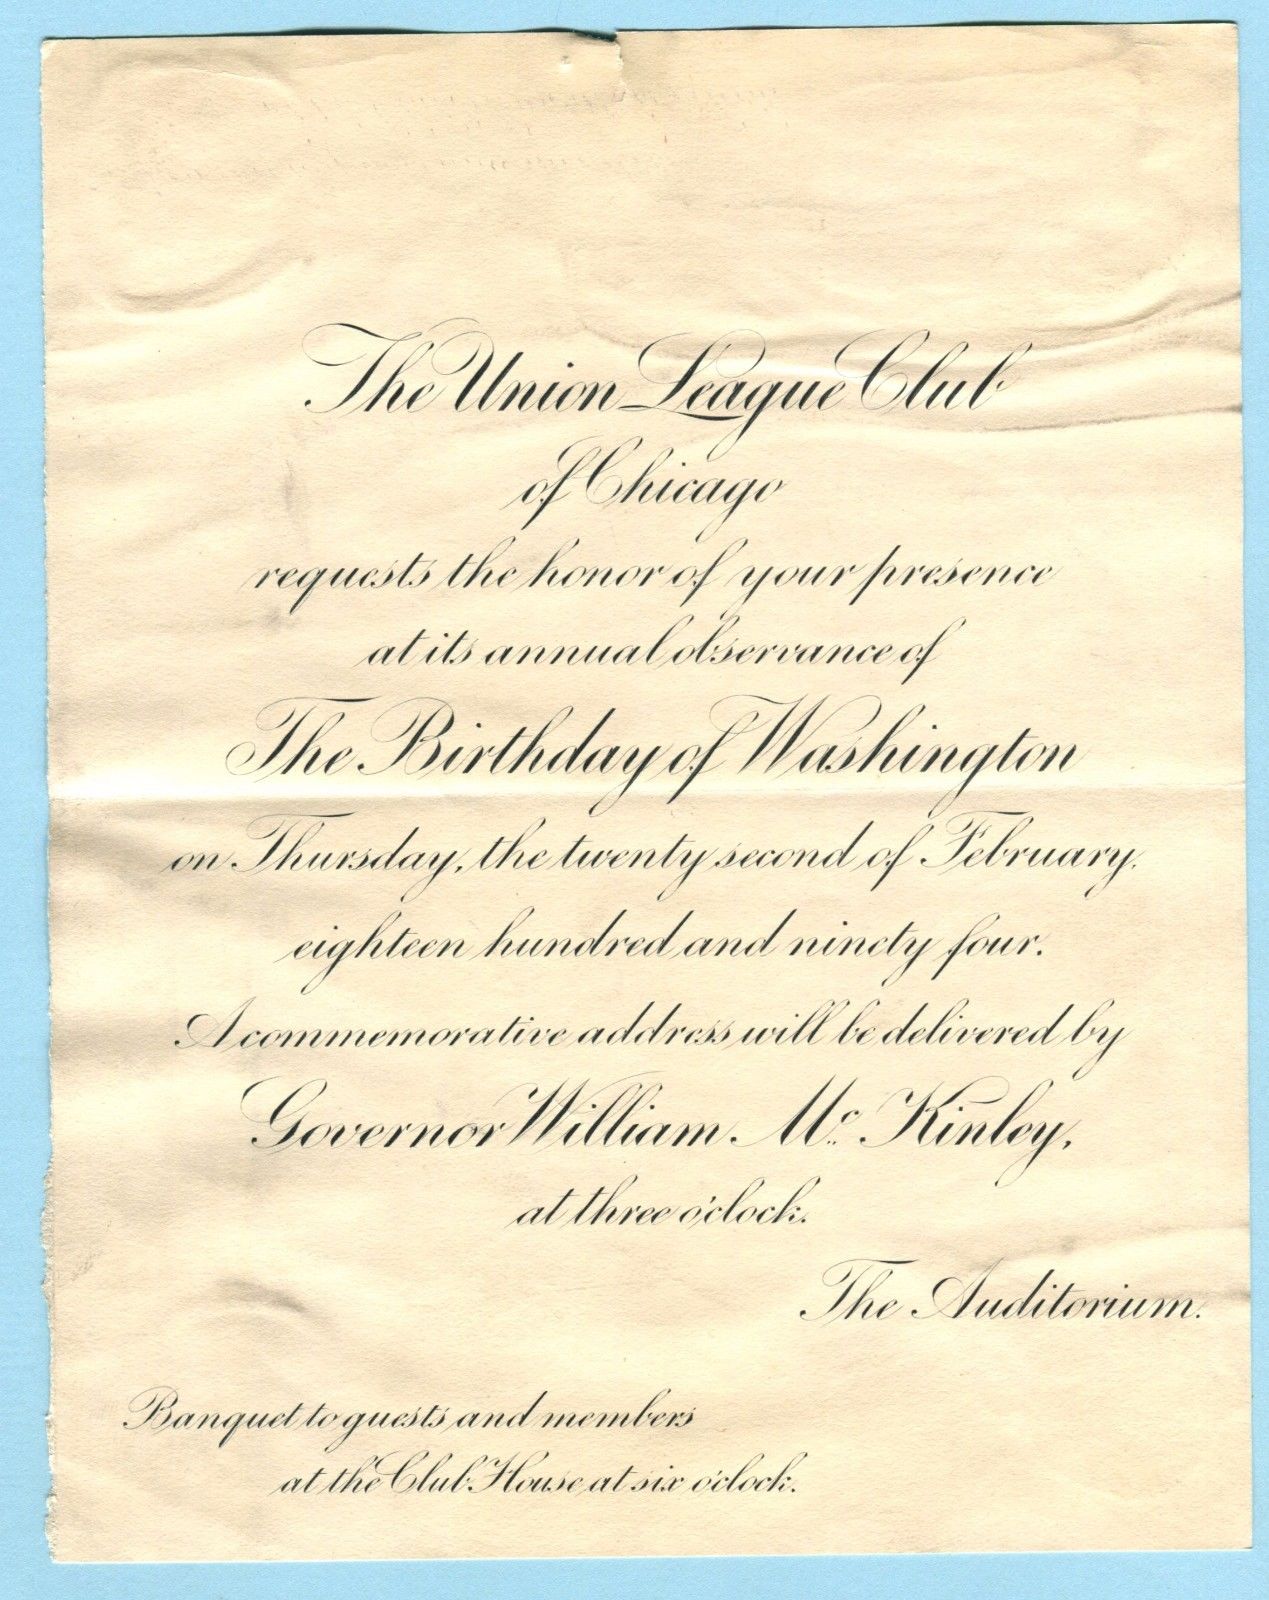 The Union League Club
of Chicago
requests the honor of your presence
at its annual observance of
The Birthday of Washington
on Thursday, the twenty second of February,
eighteen hundred and ninety four.
A commemorative address will be delivered by
Governor William Mc. Kinley,
at three o'clock.
The Auditorium.
Banquet to guests and members
at the Club House at six o'clock.